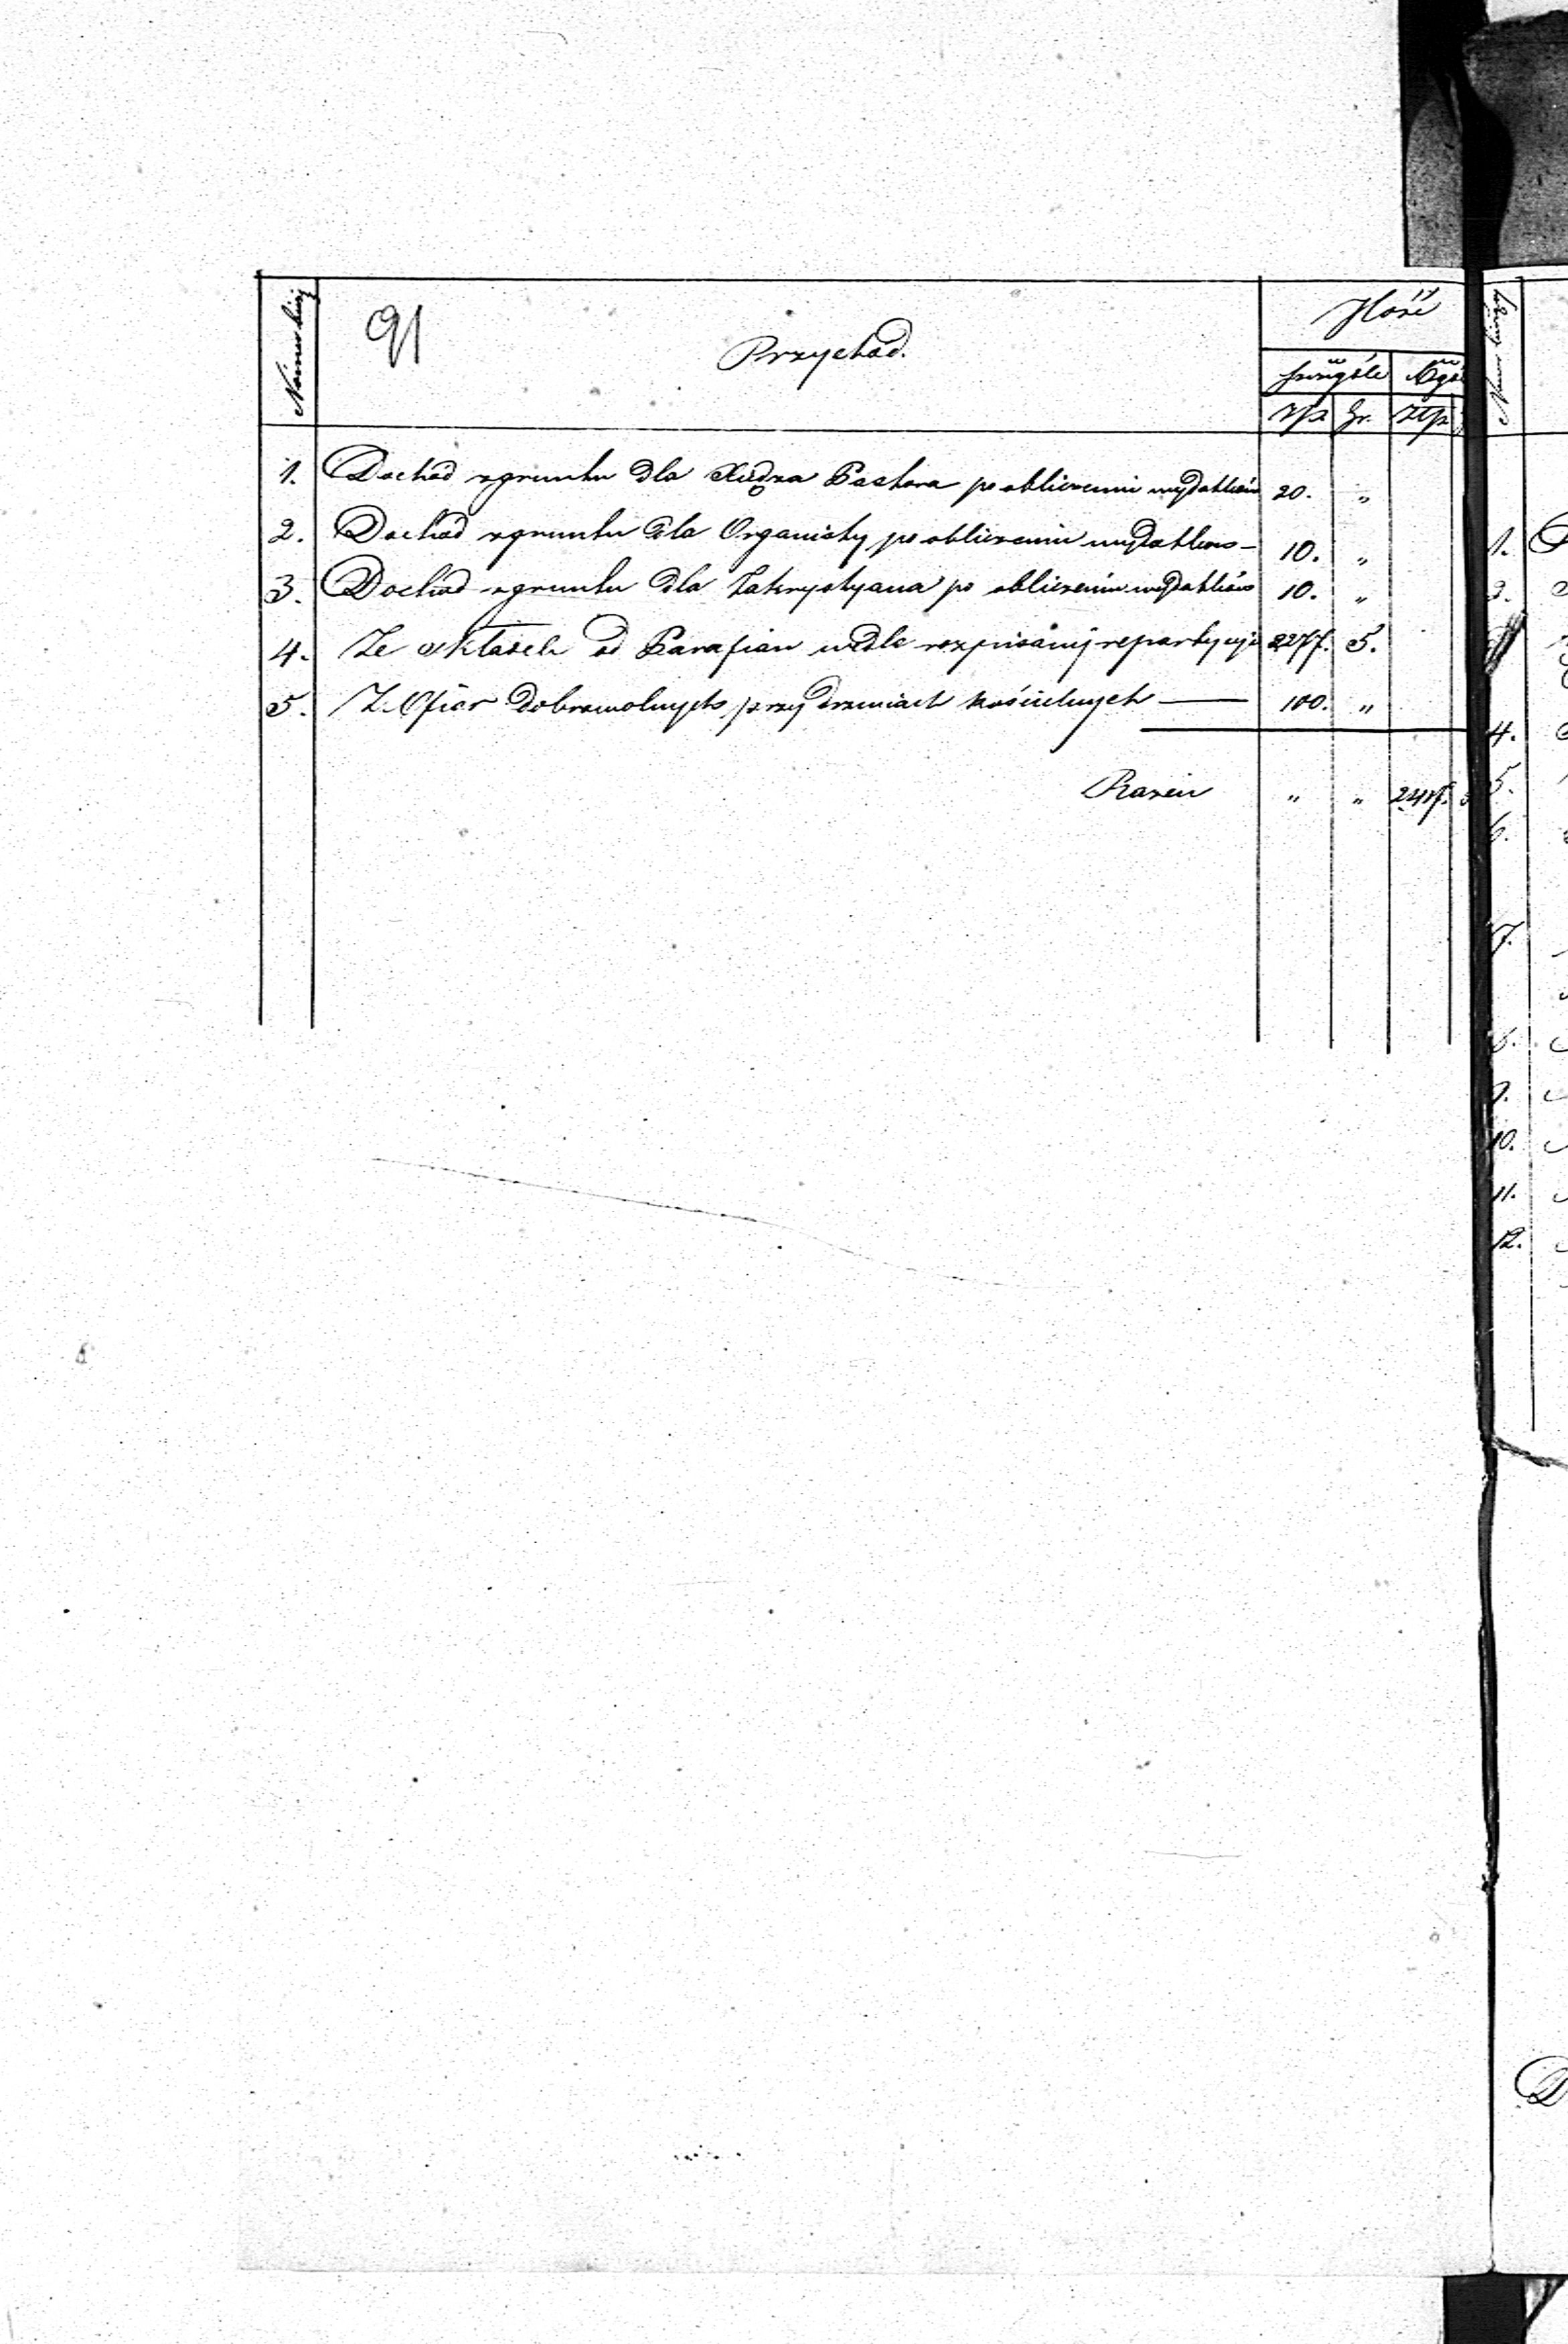 Numer bieżą
91
Przychód.
Ilość
szczególe
Ogó
Złp
Gr.
Złp
1. Dochód z gruntu dla Xiędza Pastora po obliczeniu wydatków 20. "
2. Dochód z gruntu dla Organisty po obliczeniu wydatków – 10. "
3. Dochód z gruntu dla Zakrystyana po obliczeniu wydatków 10. "
4. Ze składek od Parafian wedle rozpisanéj repartycyi 2277. 5.
5. Z Ofiar dobrowolnych przy drzwiach kościelnych — 100. "
Razem " " 2417.
1.
4.
5.
6.
7.
9.
10.
11.
12.